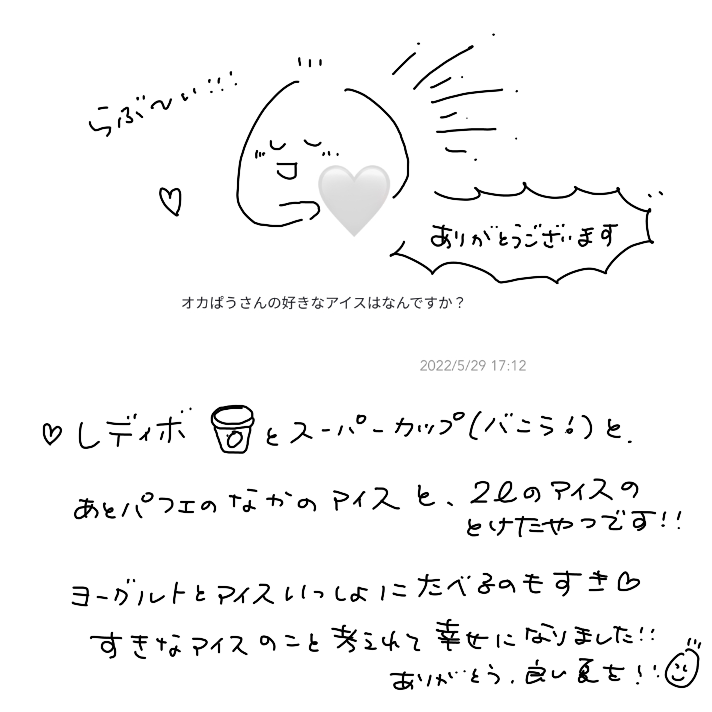 らぶ〜い!!!
ありがとうございます
オカぱうさんの好きなアイスはなんですか？
2022/5/29 17:12
♡レディボとスーパーカップ(バニラ!)と、
あとパフェのなかのアイスと、2ℓのアイスの
とけたやつです!!
ヨーグルトとアイスいっしょにたべるのもすき♡
すきなアイスのこと考えれて幸せになりました!!
ありがとう、良い夏を!!